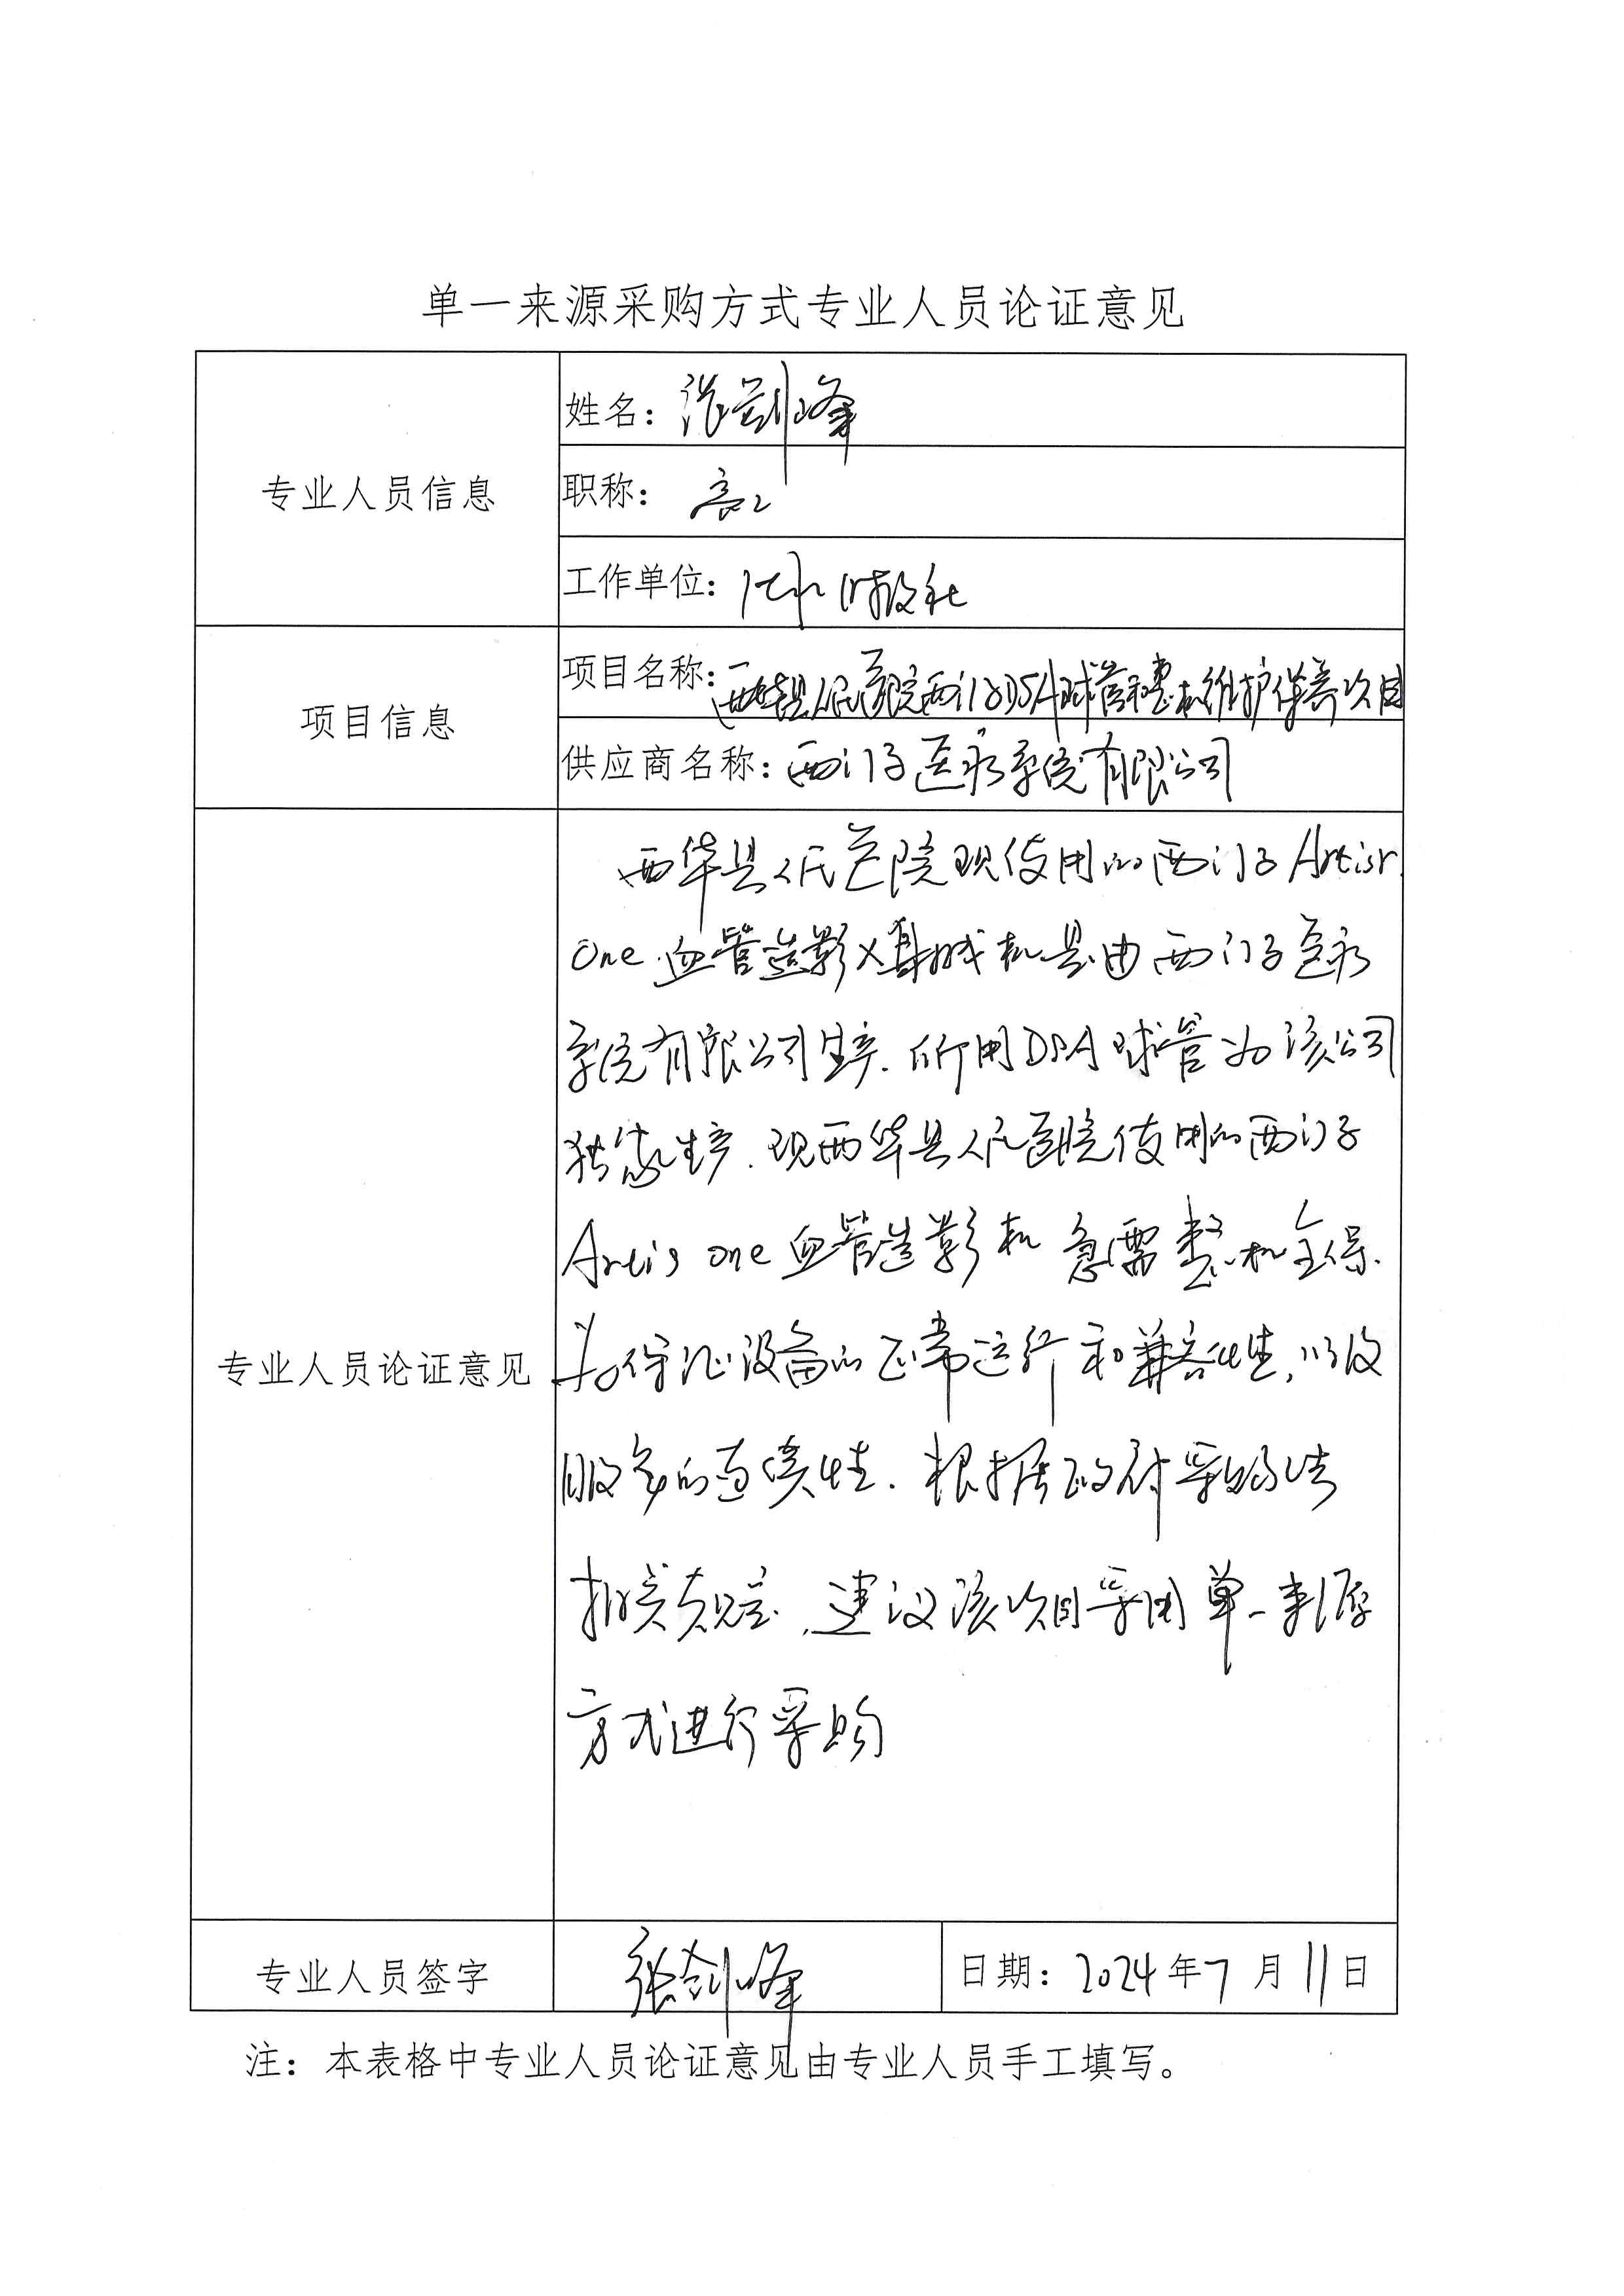 单一来源采购方式专业人员论证意见
专业人员信息
姓名：张剑峰
职称：高工
工作单位：
项目信息
项目名称：西华县人民医院西门子DSA球管和整机维护保养项目
供应商名称：西门子医疗系统有限公司
专业人员论证意见
西华县人民医院现使用的西门子Artis
One血管造影X射线机是由西门子医疗
系统有限公司生产.所用DSA球管为该公司
独家生产.现西华县人民医院使用的西门子
Artis one血管造影机急需整机全保.
为保证设备的正常运行和兼容性,以及
服务的连续性.根据政府采购法
相关规定,建议该项目采用单一来源
方式进行采购
专业人员签字
张剑峰
日期：2024年7月11日
注：本表格中专业人员论证意见由专业人员手工填写。